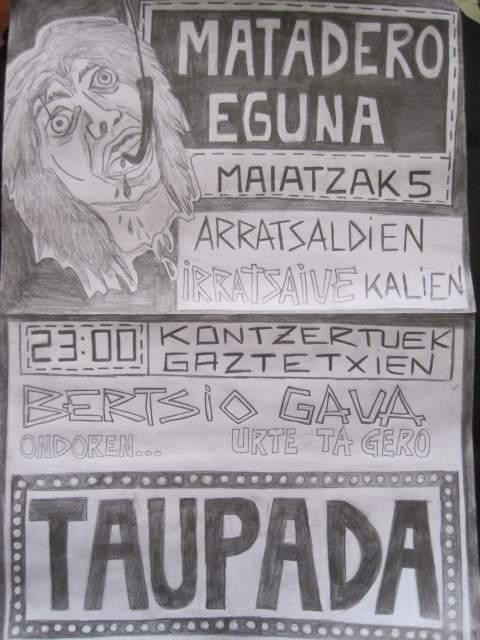 MATADERO
EGUNA
MAIATZAK 5
ARRATSALDIEN
IRRATSAIUE KALIEN
23:00 KONTZERTUEK
GAZTETXIEN
BERTSIO GAVA
ONDOREN... URTE TA GERO
TAUPADA